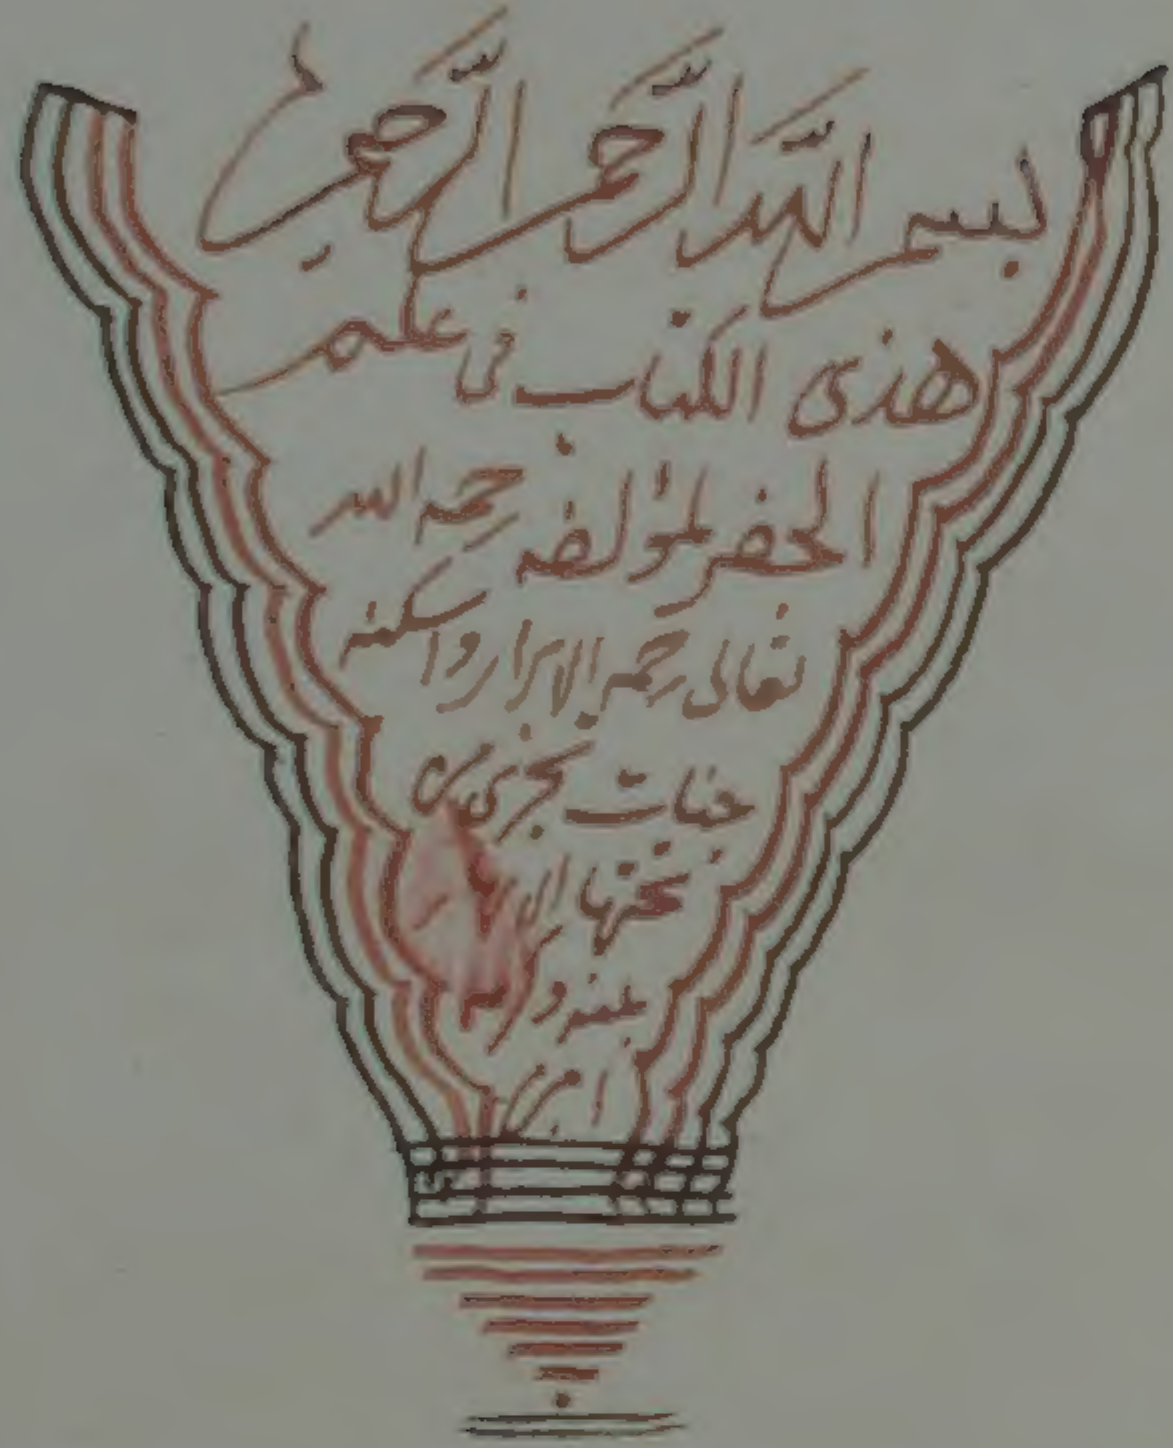 بسم الله الرحمن الرحيم
هذى الكتاب فى علم
الجفر لمؤلفه رحمه الله
تعالى رحمه الابرار واسكنه
جنات تجرى من
تحتها الانهار
بمنه وكرمه
امين